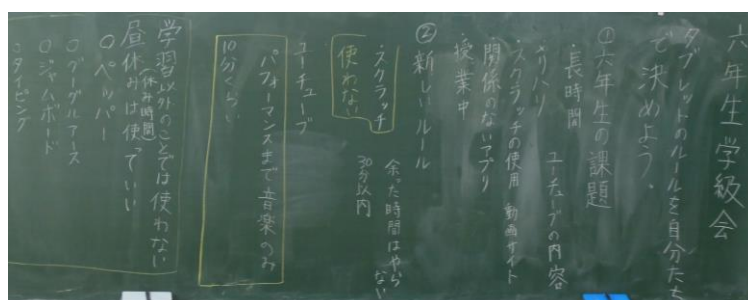 六年生 学級会
タブレットのルールを自分たち
で決めよう。
①六年生の課題
・長時間 ユーチューブの内容
・メリハリ
・スクラッチの使用 動画サイト
・関係のないアプリ
・授業中
②新しいルール
余った時間はやらない
・スクラッチ 30分以内
使わない
ユーチューブ
パフォーマンスまで音楽のみ
10分くらい
学習以外のことでは使わない
(休み時間)
昼休みは使っていい
○ペッパー
○グーグルアース
○ジャムボード
○タイピング